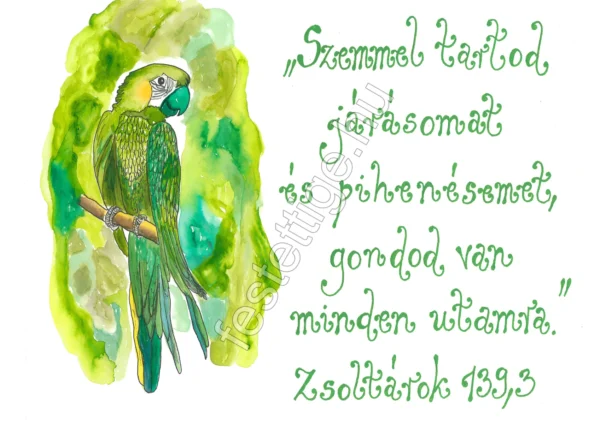 „Szemmel tartod
járásomat
és pihenésemet,
gondod van
minden utamra.”
Zsoltárok 139,3
festettige.hu